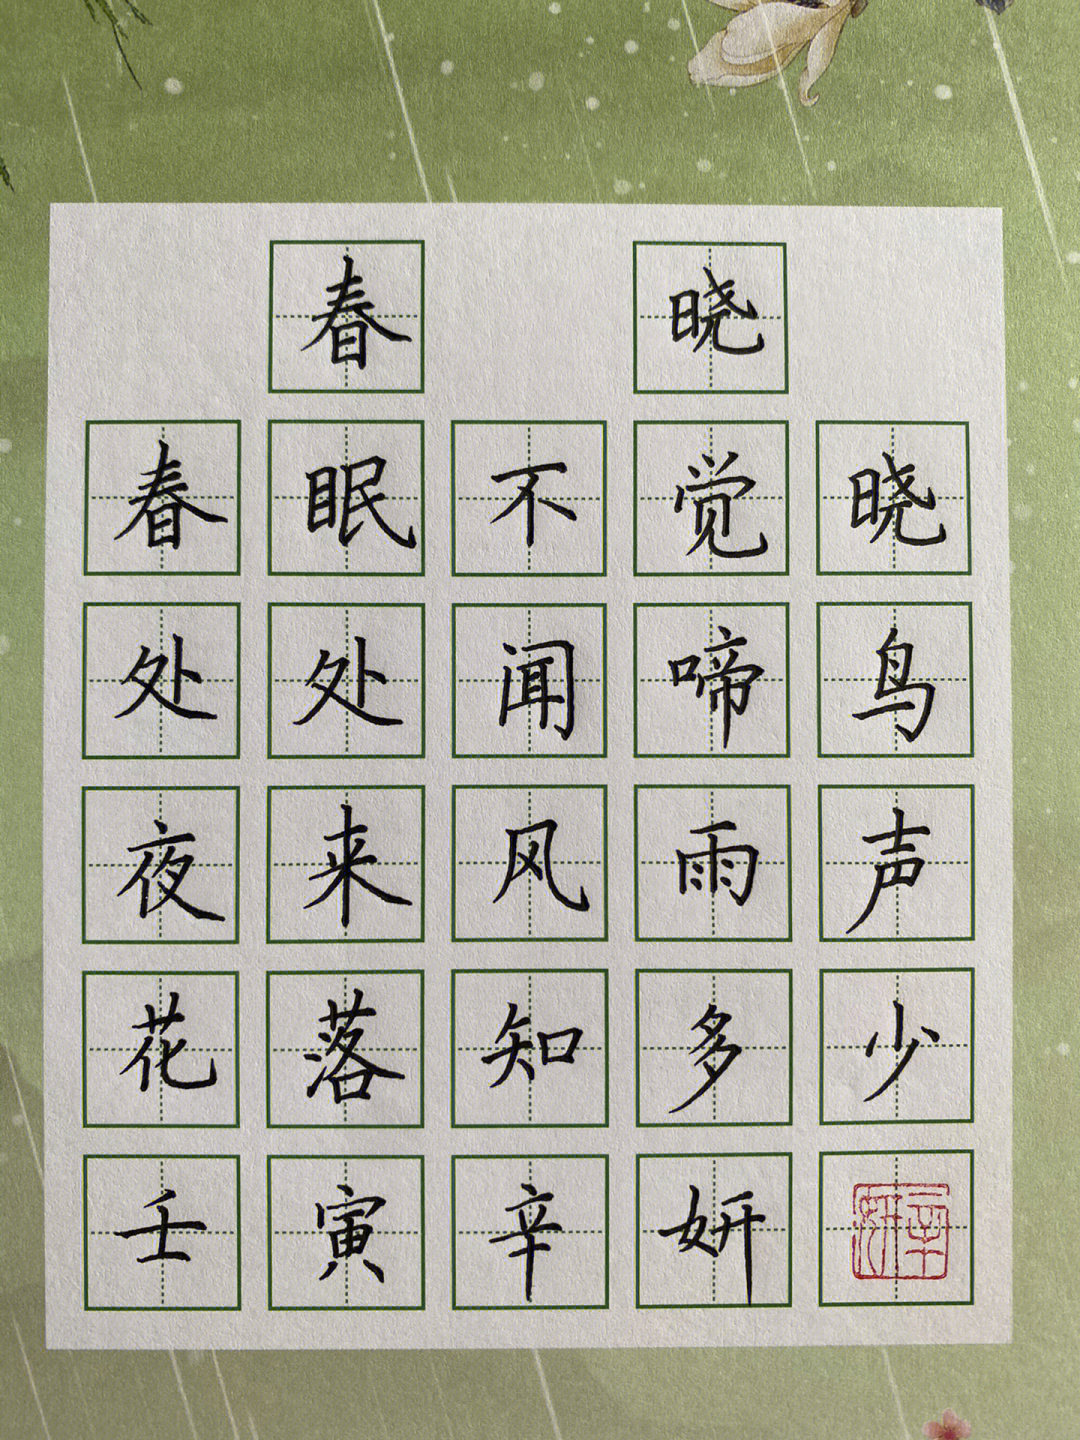 春晓
春眠不觉晓
处处闻啼鸟
夜来风雨声
花落知多少
壬寅辛妍
辛妍